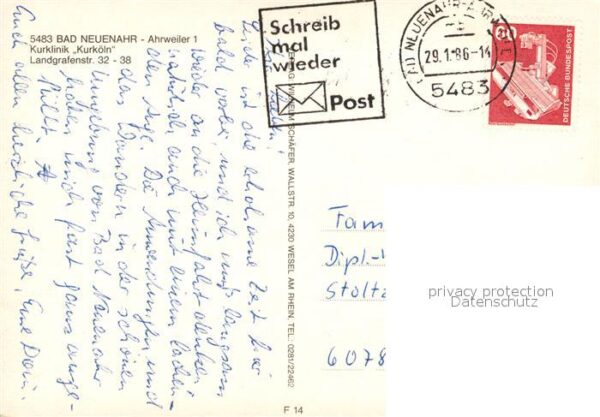 5483 BAD NEUENAHR - Ahrweiler 1
Kurklinik „Kurköln"
Landgrafenstr. 32 - 38
Schreib
mal
wieder
Post
BAD NEUENAHR-AHRWEILER
29.1.86-14
5483
80
DEUTSCHE BUNDESPOST
Leider ist die erholsame Zeit hier
bald vorbei, und ich muß langsam
wieder an die Heimfahrt denken
natürlich auch mit einem
Auge. Die Anwendungen und
das Wandern in der schönen
Umgebung von Bad Neuenahr
haben mich fast ganz
Euch allen herzliche Grüße, Eure
WILHELM SCHÄFER, WALLSTR. 10, 4230 WESEL AM RHEIN, TEL.: 0281/22462
Fam
Dipl.-
Stoltz
6078
privacy protection
Datenschutz
F 14